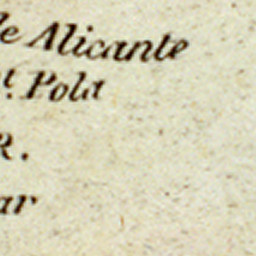 le Alicante
t. Pola
R.
ar